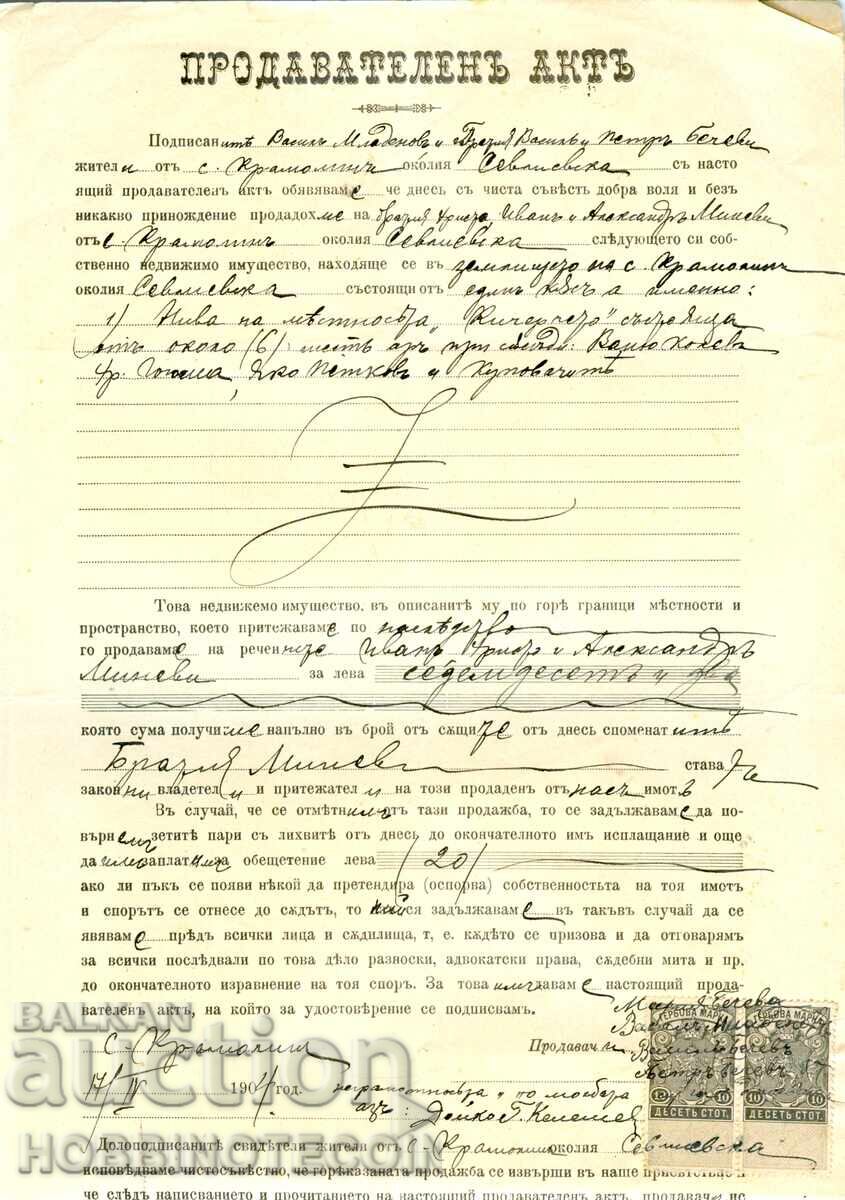 ПРОДАВАТЕЛЕНЪ АКТЪ
Подписанитѣ Василъ Младеновъ и Василъ и Петръ Бечеви
жители отъ с. Крамолинъ околия Севлиевска съ насто
ящий продавателен актъ обявяваме че днесь съ чиста съвѣсть добра воля и безъ
никакво принождение продадохме на братя Христо, Иванъ и Александръ Миневи
отъ с. Крамолинъ околия Севлиевска слѣдующето си соб-
ственно недвижимо имущество, находяще се въ землището на с. Крамолинъ
околия Севлиевска състоящи отъ единъ късъ а именно:
1) Нива на мѣстностьта „Кичерчето“ състояща
отъ около (6) шесть аръ при съсѣди:
Яко Петковъ и Купувачитѣ
Това недвижемо имущество, въ описанитѣ му по горѣ граници мѣстности и
пространство, което притежаваме по наследство
го продаваме на речените Иванъ Христо и Александръ
Миневи за лева седемдесетъ и два
която сума получихме напълно въ брой отъ сѫщите отъ днесь споменатитѣ
Братя Миневи ставатъ
законни владетели и притежатели на този продаден отъ насъ имотъ
Въ случай, че се отмѣтнимъ отъ тази продажба, то се задължаваме да по-
върнемъ зетитѣ пари съ лихвитѣ отъ днесь до окончателното имъ исплащание и още
да имъ заплатимъ за обещетение лева (20)
ако ли пъкъ се появи нѣкой да претендира (оспорва) собственностьта на тоя имотъ
и спорътъ се отнесе до сѫдътъ, то ний ся задължаваме въ такъвъ случай да се
явяваме прѣдъ всички лица и сѫдилища, т. е. кѫдѣто се призова и да отговарям
за всички послѣдвали по това дѣло разноски, адвокатски права, сѫдебни мита и пр.
до окончателното изравнение на тоя споръ. За това имъ даваме настоящий прода-
вателен актъ, на който за удостовѣрение се подписвамъ.
Мария Бечева
Василъ Младеновъ
с. Крамолин Продавачи Василъ Бечевъ
Петръ Бечевъ
17/IV 1904 год. неграмотна и по молбата
азъ: Дойко Г. Келешев
ГЕРБОВА МАРКА ГЕРБОВА МАРКА
10 10 10
ДЕСЕТЬ СТОТ. ДЕСЕТЬ СТОТ.
Долоподписанитѣ свидѣтели жители отъ с. Крамолинъ околия Севлиевска
исповѣдваме чистосъвѣстно, че горѣказаната продажба се извърши въ наше присѫтствие и
че слѣдъ написванието и прочитанието на настоящий продавателен актъ, продавачи
BALKAN
auction
HOBBINUMIS.COM